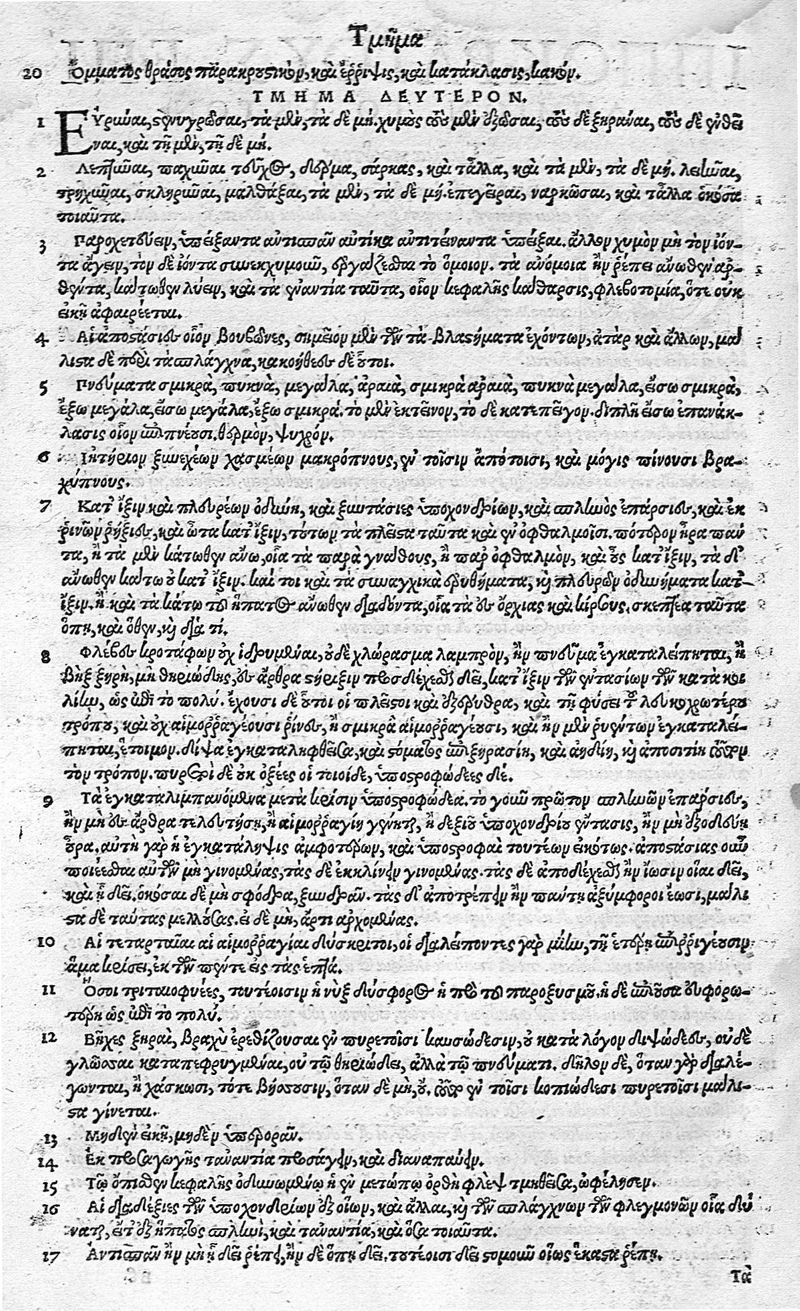 Τμῆμα
20 Ὄμματος θράσος παρακρουστικόν, καὶ ἔρριψις, καὶ κατάκλασις, κακόν.
ΤΜΗΜΑ ΔΕΥΤΕΡΟΝ.
1 Εὐρῦναι, στενυγρῶσαι, τὰ μὲν, τὰ δὲ μή. χυμοὺς τοὺς μὲν ἐξῶσαι, τοὺς δὲ ξηρᾶναι, τοὺς δὲ ἐνθεῖ-
ναι, καὶ τῇ μὲν, τῇ δὲ μή.
2 Λεπτῦναι, παχῦναι τεῦχος, δέρμα, σάρκας, καὶ τἆλλα, καὶ τὰ μὲν, τὰ δὲ μή. λειῶναι,
τρηχῦναι, σκληρῦναι, μαλθάξαι, τὰ μὲν, τὰ δὲ μή. ἐπεγεῖραι, ναρκῶσαι, καὶ τἆλλα ὁκόσα
τοιαῦτα.
3 Παροχετεύειν, ὑπείξαντα ἀντισπᾶν αὐτίκα ἀντιτείναντα ὑπεῖξαι. ἄλλον χυμὸν μὴ τὸν ἰόν-
τα ἄγειν, τὸν δὲ ἰόντα συνεκχυμοῦν, ἐργάζεσθαι τὸ ὅμοιον. τὰ ἀνόμοια ἢν ῥέπει ἄνωθεν ἀρ-
θέντα, κάτωθεν λύειν, καὶ τὰ ἐναντία ταῦτα, οἷον κεφαλῆς κάθαρσις, φλεβοτομία, ὅτε οὐκ
εἰκῆ ἀφαιρέεται.
4 Αἱ ἀποστάσιες οἷον βουβῶνες, σημεῖον μὲν τῶν τὰ βλαστήματα ἐχόντων, ἀτὰρ καὶ ἄλλων, μά-
λιστα δὲ περὶ τὰ σπλάγχνα, κακοήθεες δὲ οὗτοι.
5 Πνεύματα σμικρὰ, πυκνὰ, μεγάλα, ἀραιὰ, σμικρὰ ἀραιὰ, πυκνὰ μεγάλα, εἴσω σμικρὰ,
ἔξω μεγάλα, εἴσω μεγάλα, ἔξω σμικρά. τὸ μὲν ἐκτεῖνον, τὸ δὲ κατεπεῖγον. διπλῆ εἴσω ἐπανάκ-
λασις οἷον ἐπιπνέουσι, θερμὸν, ψυχρόν.
6 Ἰητήριον ξυνεχέων χασμέων μακρόπνους, ἐν τοῖσιν ἀπότοισι, καὶ μόγις πίνουσι βρα-
χύπνους.
7 Κατ' ἴξιν καὶ πλευρέων ὀδύνη, καὶ ξυντάσιες ὑποχονδρίων, καὶ σπληνὸς ἐπάρσιες, καὶ ἐκ
ῥινῶν ῥήξιες, καὶ ὦτα κατ' ἴξιν, τούτων τὰ πλεῖστα ταῦτα καὶ ἐν ὀφθαλμοῖσι. πότερον ἦρα πάν-
τα, ἢ τὰ μὲν κάτωθεν ἄνω, οἷα τὰ παρὰ γνάθους, ἢ παρ' ὀφθαλμὸν, καὶ οὖς κατ' ἴξιν, τὰ δ'
ἄνωθεν κάτω οὐ κατ' ἴξιν. καί τοι καὶ τὰ συναγχικὰ ἐρυθήματα, καὶ πλευρῶν ὀδυνήματα κατ'
ἴξιν. ἢ καὶ τὰ κάτω τοῦ ἥπατος ἄνωθεν διαδόντα, οἷα τὰ ἐς ὄρχιας καὶ κίρσους. σκεπτέα ταῦτα
ὅπη, καὶ ὅθεν, καὶ διὰ τί.
8 Φλέβες κροτάφων οὐχ ἱδρυμέναι, οὐδὲ χλώρασμα λαμπρὸν, ἢν πνεῦμα ἐγκαταλείπηται, ἢ
βὴξ ξηρὴ, μὴ θηριώδης, ἐς ἄρθρα στήριξιν προσδέχεσθαι δεῖ, κατ' ἴξιν τῶν ἐντασίων τῶν κατὰ κοι-
λίην, ὡς ἐπὶ τὸ πολύ. ἔχουσι δὲ οὗτοι οἱ πλεῖστοι καὶ ἐξέρυθρα, καὶ τῇ φύσει τοῦ λευκοχρωτέρου
τρόπου, καὶ οὐχ αἱμορραγέουσι ῥῖνες, ἢ σμικρὰ αἱμορραγέουσι, καὶ ἢν μὲν ῥυέντων ἐγκαταλεί-
πηται, ἕτοιμον. δίψα ἐγκαταληφθεῖσα, καὶ στόματος ἐπιξηρασίη, καὶ ἀηδίη, καὶ ἀποσιτίη τοῦτον
τὸν τρόπον. πυρετοὶ δὲ οὐκ ὀξέες οἱ τοιοίδε, ὑποστροφώδεες δέ.
9 Τὰ ἐγκαταλιμπανόμενα μετὰ κρίσιν ὑποστροφώδεα. τὸ γοῦν πρῶτον σπληνῶν ἐπάρσιες,
ἢν μὴ ἐς ἄρθρα τελευτήσῃ, ἢ αἱμορραγίη γένηται, ἢ δεξιοῦ ὑποχονδρίου ἔντασις, ἢν μὴ ἐξοδεύσῃ
οὖρα, αὕτη γὰρ ἡ ἐγκατάληψις ἀμφοτέρων, καὶ ὑποστροφαὶ τουτέων εἰκότως. ἀποστάσιας οὖν
ποιέεσθαι αὐτῶν μὴ γινομένας, τὰς δὲ ἐκκλίνειν γινομένας. τὰς δὲ ἀποδέχεσθαι ἢν ἴωσιν οἷαι δεῖ,
καὶ ᾗ δεῖ. ὁκόσαι δὲ μὴ σφόδρα, ξυνδρᾶν. τὰς δ' ἀποτρέπειν ἢν πάντη ἀξύμφοροι ἔωσι, μάλι-
στα δὲ ταύτας μελλούσας. εἰ δὲ μὴ, ἄρτι ἀρχομένας.
10 Αἱ τεταρταῖαι αἱ αἱμορραγίαι δύσκριτοι, οἱ διαλείποντες γὰρ μίην, τῇ ἑτέρῃ ἐπιρριγέουσιν
ἅμα κρίσει, ἐκ τῶν πέντε εἰς τὰς ἑπτά.
11 Ὅσοι τριταιοφυέες, τουτέοισιν ἡ νὺξ δύσφορος ἡ πρὸ τοῦ παροξυσμοῦ. ἡ δὲ ἐπιοῦσα εὐφορω-
τέρη ὡς ἐπὶ τὸ πολύ.
12 Βῆχες ξηραὶ, βραχὺ ἐρεθίζουσαι ἐν πυρετοῖσι καυσώδεσιν, οὐ κατὰ λόγον διψώδεες, οὐδὲ
γλῶσσαι καταπεφρυγμέναι, οὐ τῷ θηριώδει, ἀλλὰ τῷ πνεύματι. δῆλον δὲ, ὅταν γὰρ διαλέ-
γωνται, ἢ χάσκωσι, τότε βήσσουσιν, ὅταν δὲ μὴ, οὔ. τοῦτο ἐν τοῖσι κοπιώδεσι πυρετοῖσι μάλι-
στα γίνεται.
13 Μηδὲν εἰκῆ, μηδὲν ὑπερορᾶν.
14 Ἐκ προσαγωγῆς τἀναντία προσάγειν, καὶ διαναπαύειν.
15 Τῷ ὄπισθεν κεφαλῆς ὀδυνωμένῳ ἡ ἐν μετώπῳ ὀρθὴ φλὲψ τμηθεῖσα, ὠφέλησεν.
16 Αἱ διαδέξιες τῶν ὑποχονδρίων ἐξ οἵων, καὶ ἄλλαι, καὶ τῶν σπλάγχνων τῶν φλεγμονῶν οἷα δύ-
ναται, εἴτ' ἐξ ἥπατος σπληνὶ, καὶ τἀναντία, καὶ ὅσα τοιαῦτα.
17 Ἀντισπᾶν ἢν μὴ ᾗ δεῖ ῥέπῃ, ἢν δὲ ὅπη δεῖ. τοτέοισι δεῖ στομοῦν οἵως ἕκαστα ῥέπῃ.
Τὰ